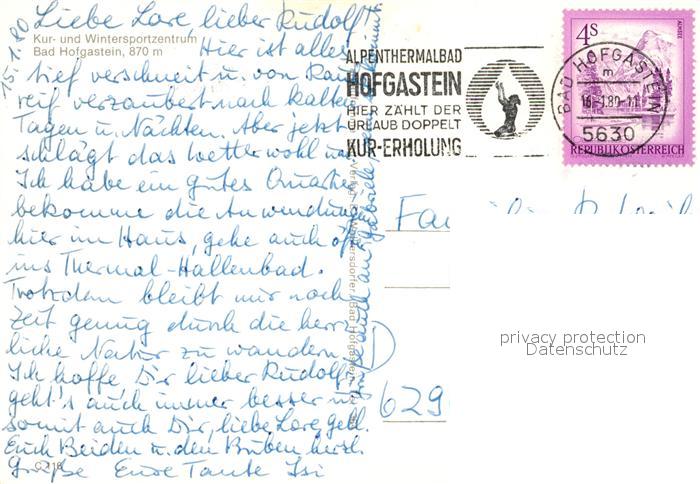 15.1.80
Liebe Lore, lieber Rudolf!
Kur- und Wintersportzentrum
Bad Hofgastein, 870 m
Hier ist alles
tief verschneit u. von Rau
reif verzaubert nach kalten
Tagen u. Nächten. Aber jetzt
schlägt das Wetter wohl um
Ich habe ein gutes Quartier
bekomme die Anwendungen
hier im Haus, gehe auch
ins Thermal-Hallenbad.
Trotzdem bleibt mir noch
Zeit genug durch die herr
liche Natur zu wandern.
Ich hoffe Dir lieber Rudolf
geht's auch immer besser u.
somit auch Dir, liebe Lore, gell.
Euch Beiden u. den Buben herzl.
Grüße Eure Tante Isi
C 218
ALPENTHERMALBAD
HOFGASTEIN
HIER ZÄHLT DER
URLAUB DOPPELT
KUR-ERHOLUNG
BAD HOFGASTEIN
m
5630
4S
ALMSEE
REPUBLIK ÖSTERREICH
629
privacy protection
Datenschutz